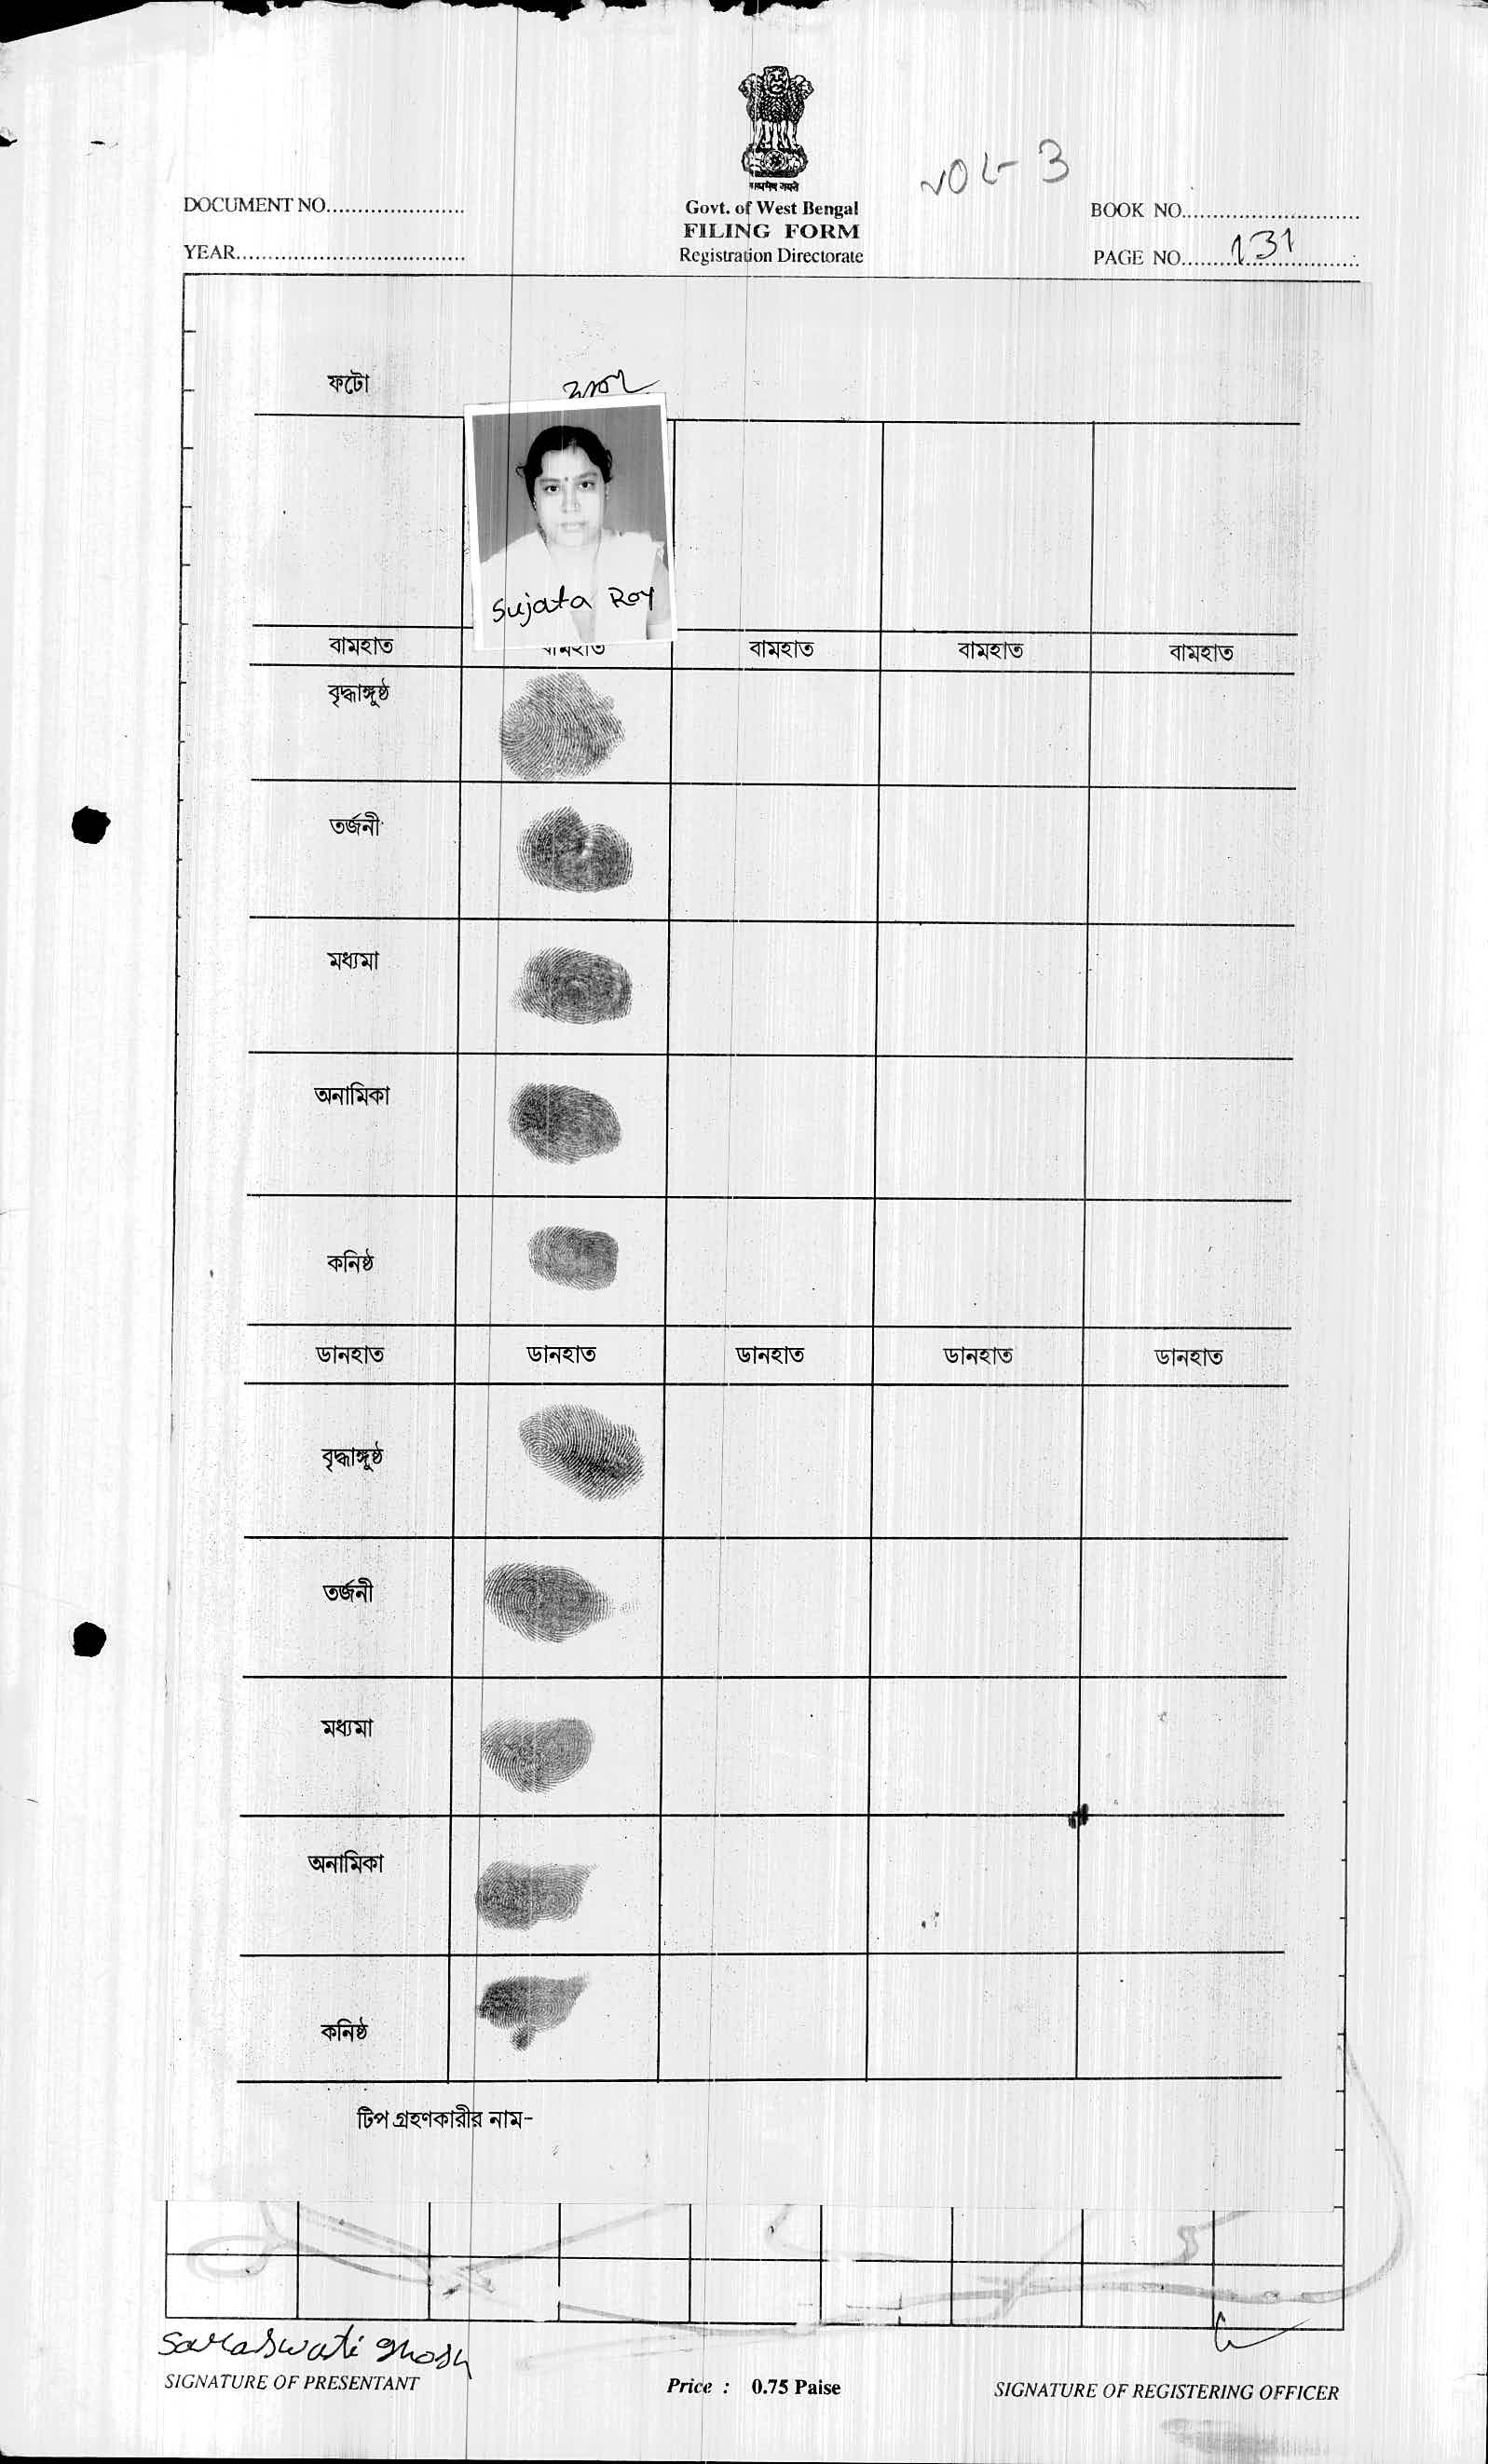 VOL-3
DOCUMENT NO......................
Govt. of West Bengal
BOOK NO............................
FILING FORM
YEAR....................................
Registration Directorate
PAGE NO. 131
ফটো
Sujata Roy
বামহাত বামহাত বামহাত বামহাত বামহাত
বৃদ্ধাঙ্গুষ্ঠ
তর্জনী
মধ্যমা
অনামিকা
কনিষ্ঠ
ডানহাত ডানহাত ডানহাত ডানহাত ডানহাত
বৃদ্ধাঙ্গুষ্ঠ
তর্জনী
মধ্যমা
অনামিকা
কনিষ্ঠ
টিপ গ্রহণকারীর নাম-
Saraswati Ghosh
SIGNATURE OF PRESENTANT
Price : 0.75 Paise
SIGNATURE OF REGISTERING OFFICER